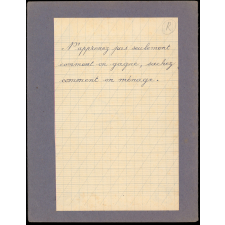 « N'apprenez pas seulement
comment on gagne, sachez
comment on ménage. »